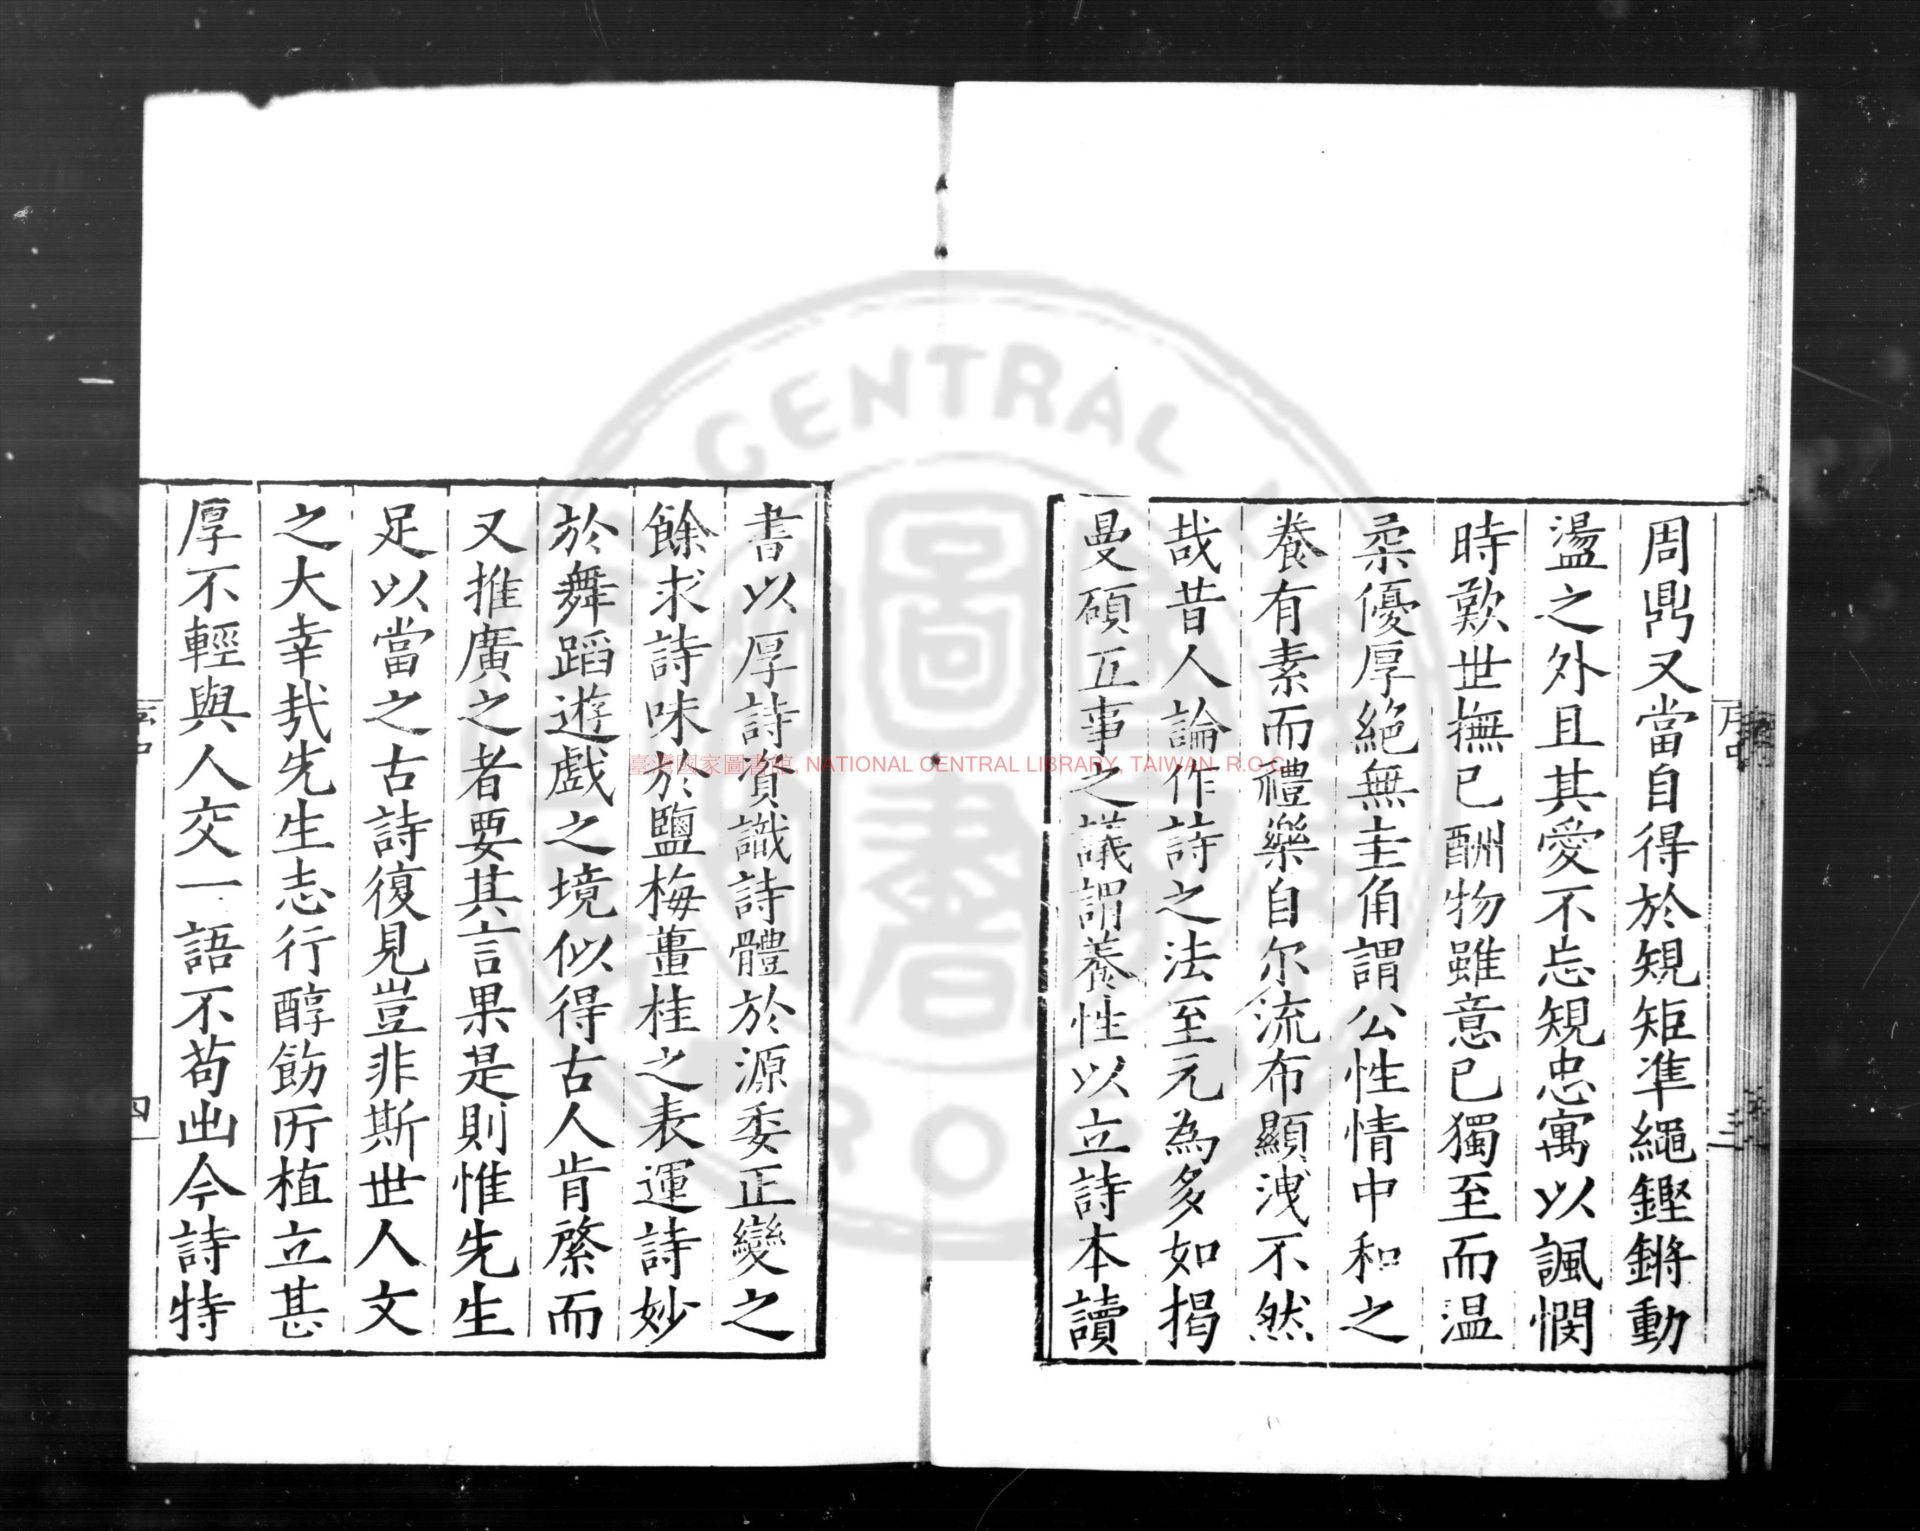 周鼎又當自得於規矩準繩鏗鏘動
盪之外且其愛不忘規忠寓以諷憫
時歎世撫已酬物雖意已獨至而温
柔優厚絶無圭角謂公性情中和之
養有素而禮樂自尔流布顯洩不然
哉昔人論作詩之法至元為多如揭
曼碩五事之議謂養性以立詩本讀
書以厚詩資識詩體於源委正變之
餘求詩味於鹽梅薑桂之表運詩妙
於舞蹈遊戲之境似得古人肯綮而
又推廣之者要其言果是則惟先生
足以當之古詩復見豈非斯世人文
之大幸哉先生志行醇飭所植立甚
厚不輕與人交一語不苟出今詩特
序中
三
四
臺灣國家圖書館, NATIONAL CENTRAL LIBRARY, TAIWAN, R.O.C.